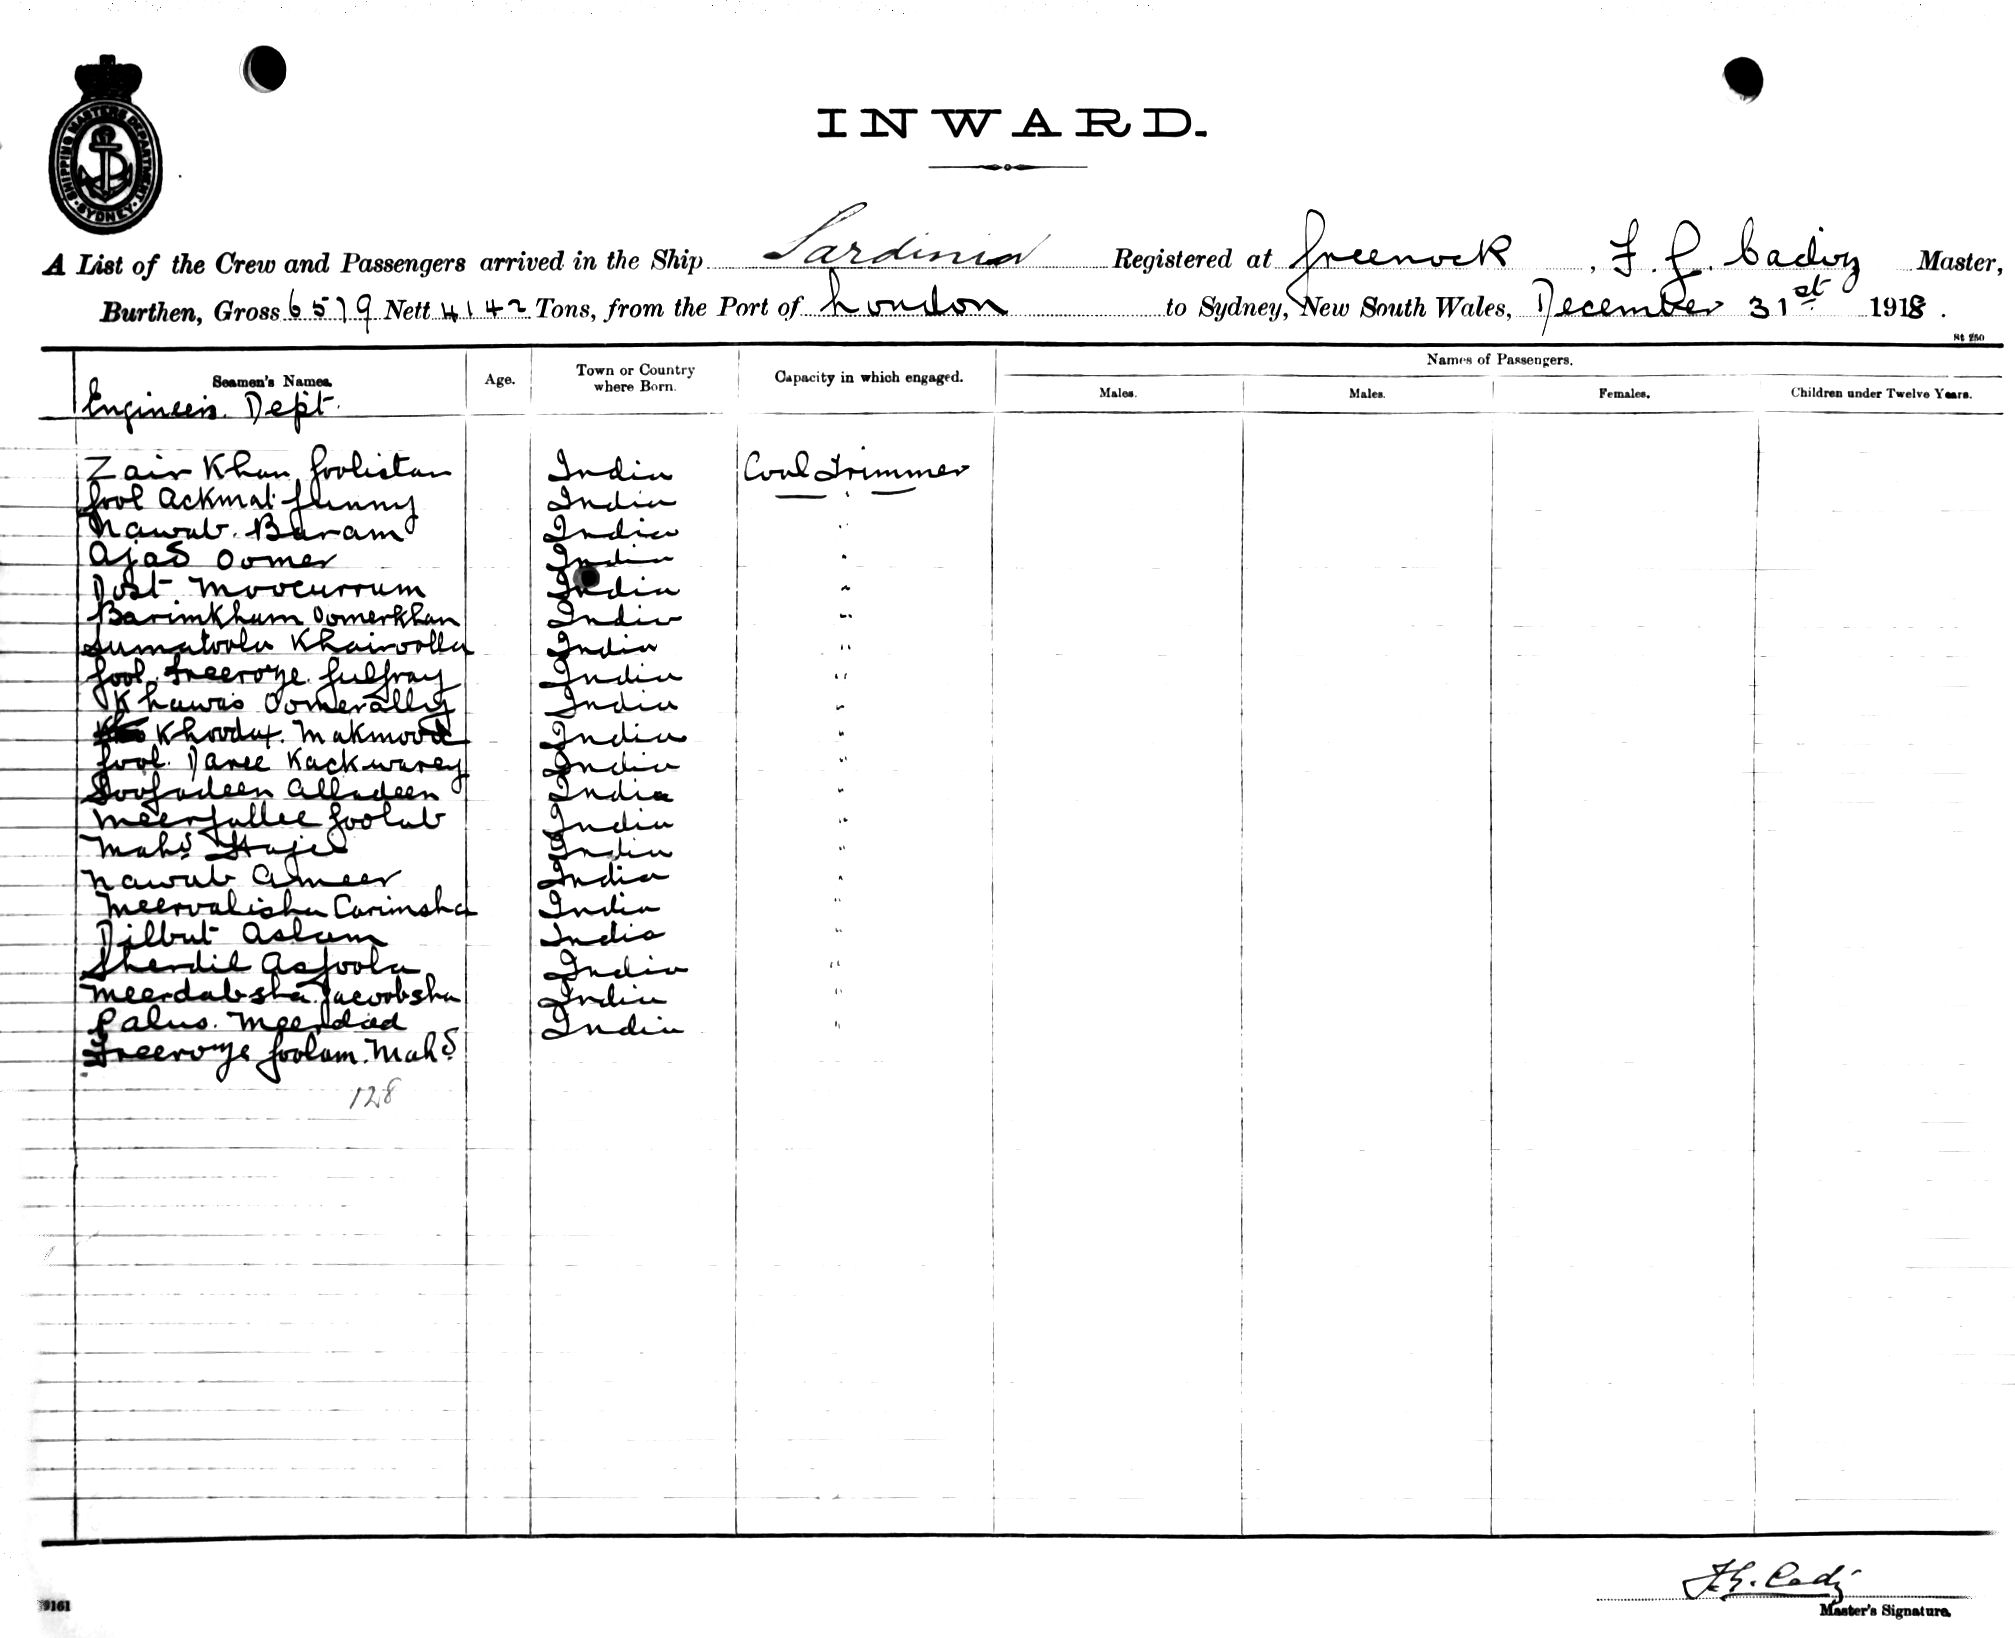 SHIPPING MASTERS DEPARTMENT
SYDNEY
INWARD.
A List of the Crew and Passengers arrived in the Ship Sardinia Registered at Greenock, F. G. Cadiz Master,
Burthen, Gross 6579 Nett 4142 Tons, from the Port of London to Sydney, New South Wales, December 31st 1918.
St 250
Names of Passengers.
Seamen's Names. Age. Town or Country where Born. Capacity in which engaged. Males. Males. Females. Children under Twelve Years.
Engineers. Dept.
Zair Khan Goolistan India Coal Trimmer
Gool Ackmat Gunny India "
Nawab. Baram India "
Ajab Oomer India "
Dost Moocurrum India "
Barimkham Oomerkhan India "
Sumatoola Khairoolla India "
Gool India "
Khawas Oomerally India "
Khoodat. Makmood India "
Gool. Daree Kackwarey India "
Alladeen India "
Goolab India "
Mahd India "
Nawab Ameer India "
Meervalisha Carimsha India "
Dilbut Aslam India "
Sherdil India "
Meerdabsha Jacoobsha India "
Palus. Meerdad India "
Goolam. Mahd
128
9161
F. G. Cadiz
Master's Signature.